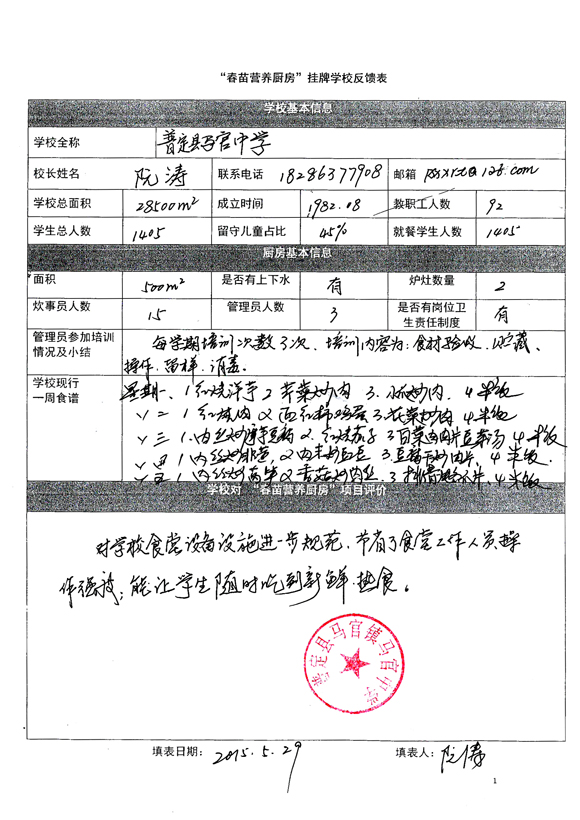 “春苗营养厨房”挂牌学校反馈表
学校基本信息
学校全称 普定县马官中学
校长姓名 阮涛 联系电话 18286377908 邮箱 @126.com
学校总面积 28500m² 成立时间 1982.08 教职工人数 92
学生总人数 1405 留守儿童占比 45% 就餐学生人数 1405
厨房基本信息
面积 500m² 是否有上下水 有 炉灶数量 2
炊事员人数 15 管理员人数 3 是否有岗位卫
生责任制度 有
管理员参加培训 每学期培训次数3次、培训内容为:食材验收、收藏、
情况及小结 操作、留样、消毒。
学校现行
一周食谱
星期一、1红烧洋芋2芹菜炒肉 3、瓜炒肉、4米饭
〃二 1红烧肉 2西红柿鸡蛋3花菜炒肉4米饭
〃三 1、肉丝炒 2、红烧茄子 3白菜肉片豆 汤4米饭
〃四 1肉丝炒韭 2肉末 3豆 炒肉片、4米饭、
〃五 1肉丝炒莴笋2香菇炒肉丝、3排骨 4米饭
学校对“春苗营养厨房”项目评价
对学校食堂设备设施进一步规范、节省了食堂工作人员操
作强 ;能让学生随时吃到新鲜、热食。
普定县马官镇马官中学
填表日期: 2015.5.29 填表人: 阮涛
1